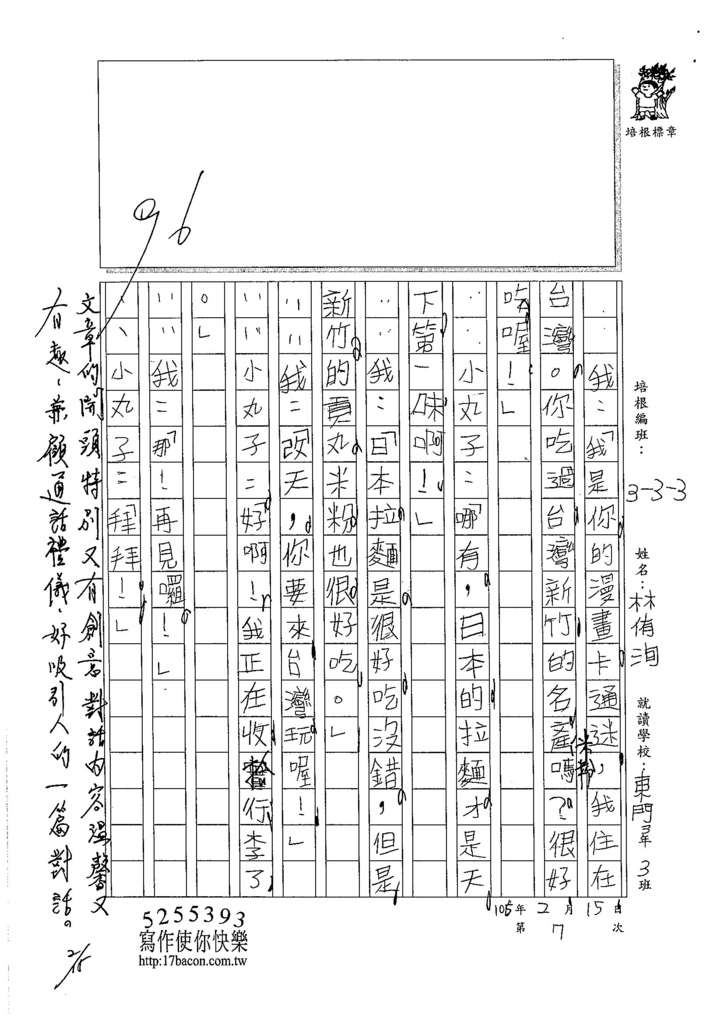 培根標章
96
培根編班：3-3-3
姓名：林侑洵
就讀學校：東門3年3班
105年2月15日
第7次
：：我：「我是你的漫畫卡通迷，我住在
台灣。你吃過台灣新竹的名產米粉嗎？很好
吃喔！」
：：小丸子：「哪有，日本的拉麵才是天
下第一味啊！」
：：我：「日本拉麵是很好吃沒錯，但是
新竹的貢丸米粉也很好吃。」
：：我：「改天，你要來台灣玩喔！」
：：小丸子：「好啊！我正在收行李了
。」
：：我：「那！再見囉！」
：：小丸子：「拜拜！」
文章的開頭特別又有創意對話內容溫馨又
有趣，兼顧通話禮儀，好吸引人的一篇對話。
2/15
5255393
寫作使你快樂
http:17bacon.com.tw